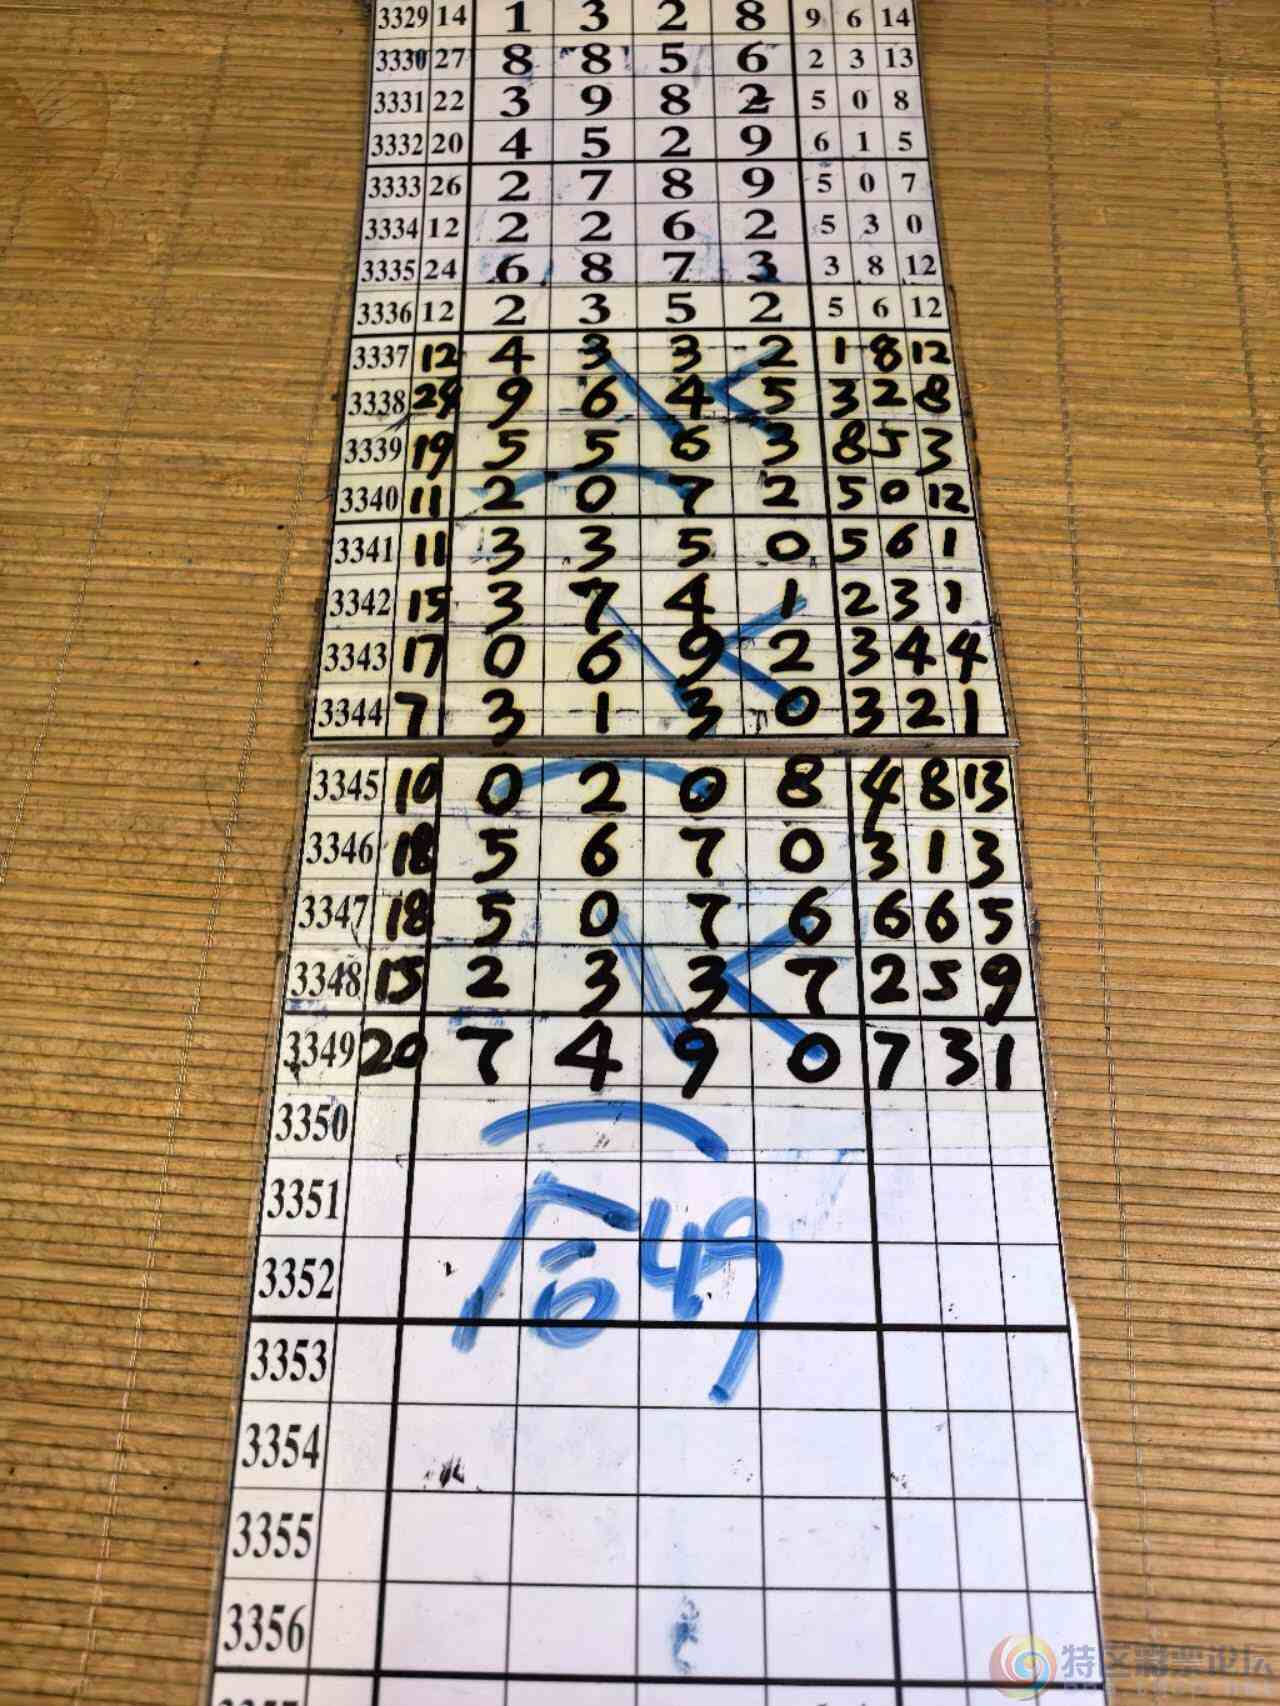 3329 14 1 3 2 8 9 6 14
3330 27 8 8 5 6 2 3 13
3331 22 3 9 8 2 5 0 8
3332 20 4 5 2 9 6 1 5
3333 26 2 7 8 9 5 0 7
3334 12 2 2 6 2 5 3 0
3335 24 6 8 7 3 3 8 12
3336 12 2 3 5 2 5 6 12
3337 12 4 3 3 2 1 8 12
3338 24 9 6 4 5 3 2 8
3339 19 5 5 6 3 8 5 3
3340 11 2 0 7 2 5 0 12
3341 11 3 3 5 0 5 6 1
3342 15 3 7 4 1 2 3 1
3343 17 0 6 9 2 3 4 4
3344 7 3 1 3 0 3 2 1
3345 10 0 2 0 8 4 8 13
3346 18 5 6 7 0 3 1 3
3347 18 5 0 7 6 6 6 5
3348 15 2 3 3 7 2 5 9
3349 20 7 4 9 0 7 3 1
3350
3351
合49
3352
3353
3354
3355
3356
特区彩票论坛